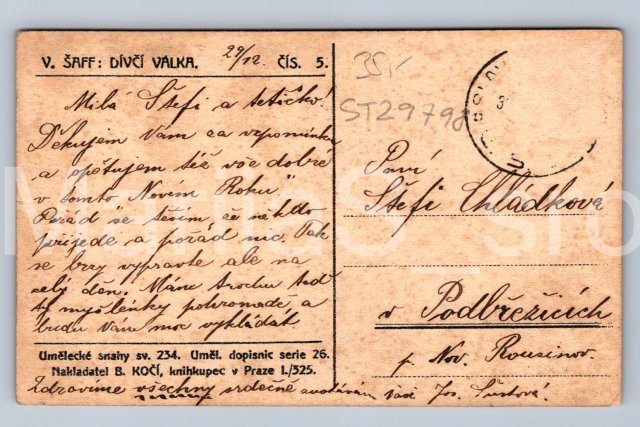 V. ŠAFF: DÍVČÍ VÁLKA. 29/12. ČÍS. 5.
Milá Štefi a tetičko!
Děkujem Vám za vzpomínku
a opětujem též vše dobré
v tomto Novém Roku.
Pořád se těším, že někdo
přijede a pořád nic. Tak
se brzy vypravte ale na
celý den. Máme trochu teď
myšlénky pohromadě, a
budu Vám moc vykládat.
Umělecké snahy sv. 234. Uměl. dopisnic serie 26.
Nakladatel B. KOČÍ, knihkupec v Praze I./325.
Zdravíme všechny srdečně a Vaše Jos. Šustová.
35,-
ST29798
Paní
Štefi Chládková
v Podbřežicích
p. Nov. Rousínov.